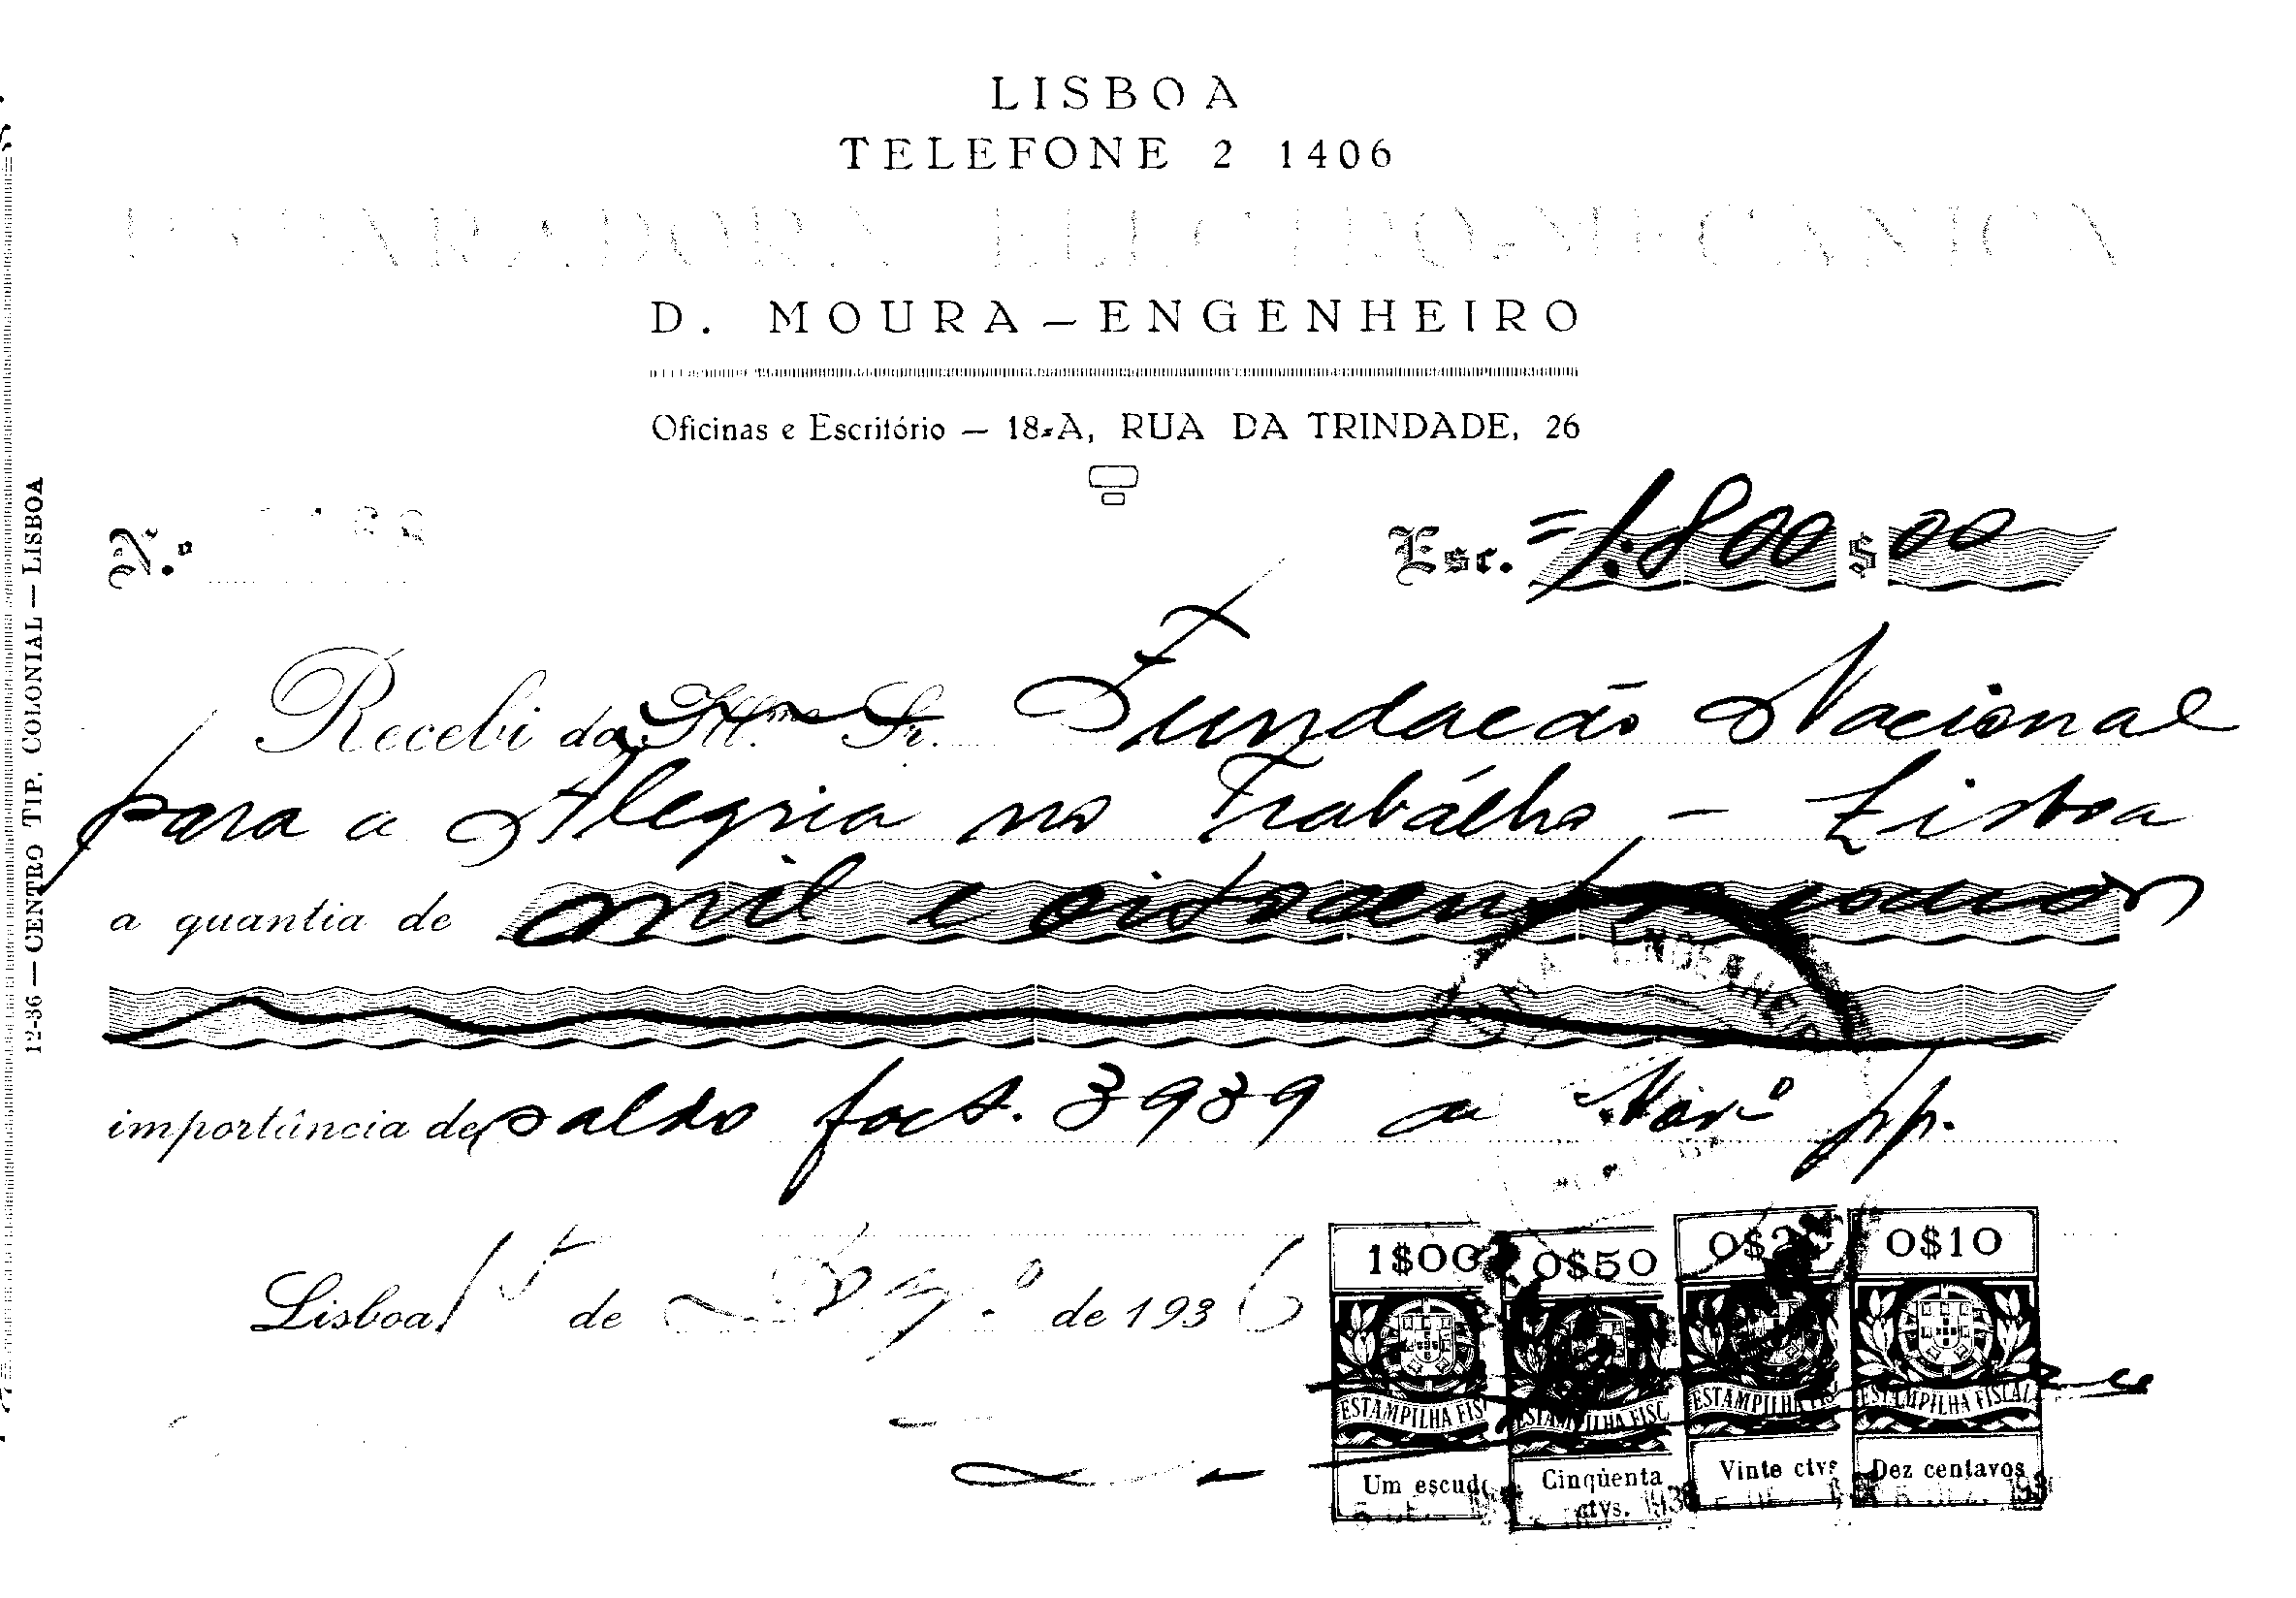 LISBOA
TELEFONE 2 1406
REPARADORA ELECTRO-MECANICA
D. MOURA — ENGENHEIRO
Oficinas e Escritório — 18-A, RUA DA TRINDADE, 26
N.º Esc. = 1.800 $ 00
Recebi da Ill.mo Sr. Fundacão Nacional
para a Alegria no Trabálho - Lisboa
a quantia de mil e oitocentos escudos
importância de saldo fact. 3939 de Nov.º pp.
Lisboa, 15 de Dez.º de 1936
1$00 0$50 0$20 0$10
ESTAMPILHA FIS ESTAMPILHA FISC ESTAMPILHA FIS ESTAMPILHA FISCAL
Um escudo Cinqüenta ctvs. Vinte ctvs Dez centavos
12-36 — CENTRO TIP. COLONIAL — LISBOA